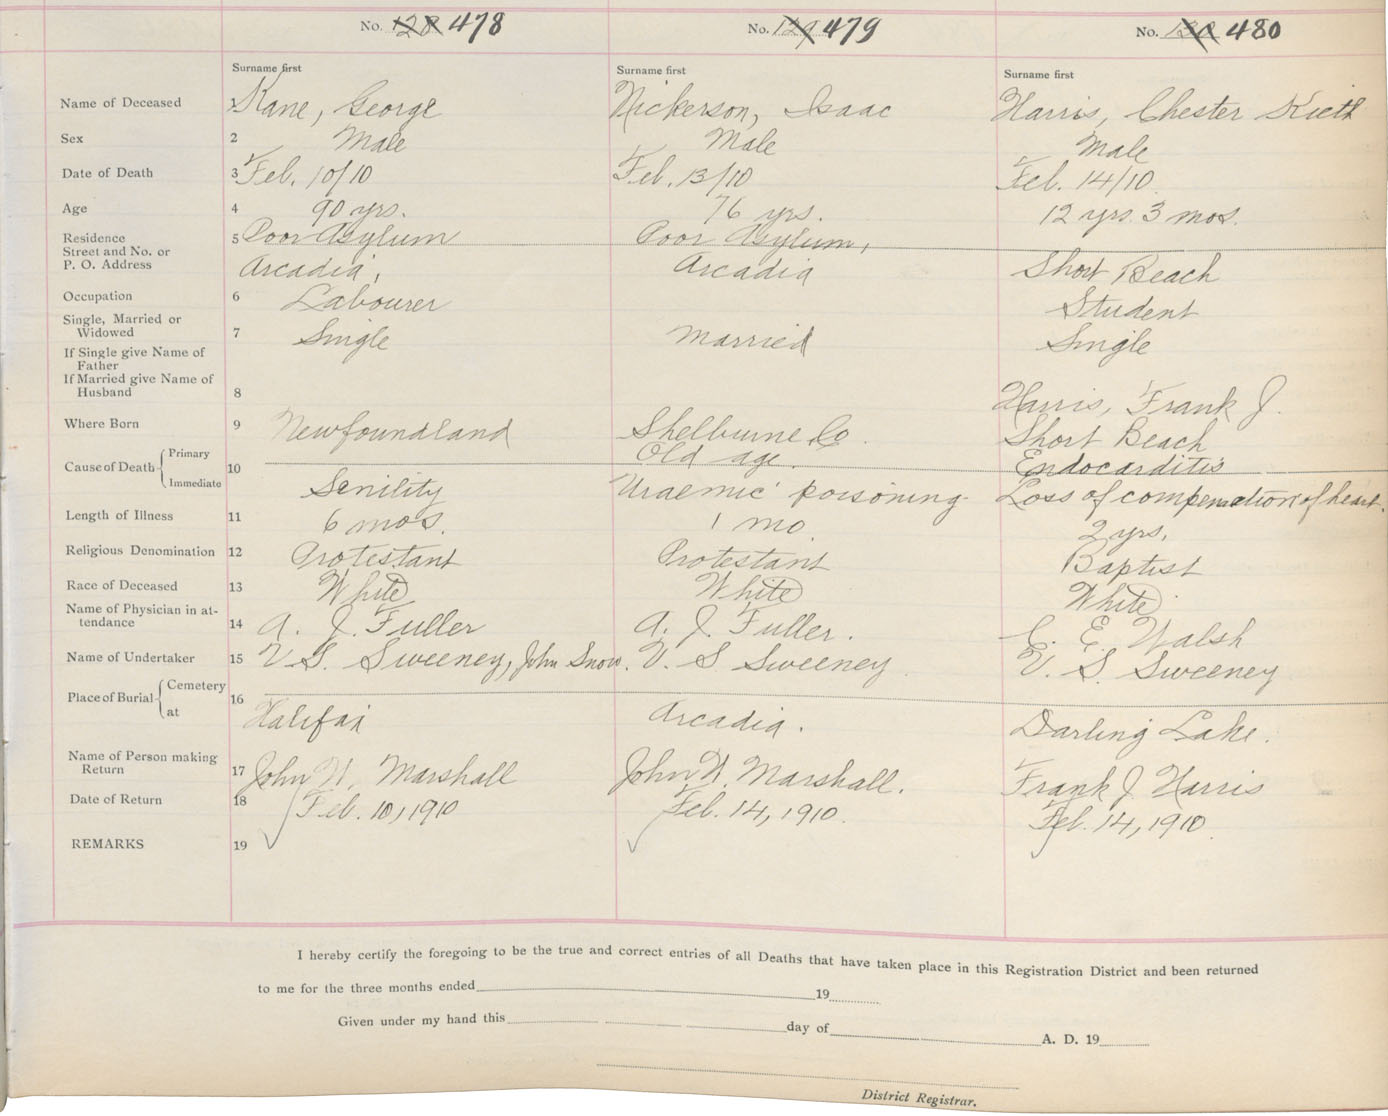 No. 128 478 No. 129 479 No. 130 480
Surname first Surname first Surname first
Name of Deceased 1 Kane, George Nickerson, Isaac Harris, Chester Kieth
Sex 2 Male Male Male
Date of Death 3 Feb. 10/10 Feb. 13/10 Feb. 14/10
Age 4 90 yrs. 76 yrs. 12 yrs. 3 mos.
Residence 5 Poor Asylum Poor Asylum,
Street and No. or
P. O. Address Arcadia, Arcadia Short Beach
Occupation 6 Labourer Student
Single, Married or
Widowed 7 Single Married Single
If Single give Name of
Father
If Married give Name of
Husband 8 Harris, Frank J.
Where Born 9 Newfoundland Shelburne Co. Short Beach
Cause of Death Primary 10 Old age. Endocarditis
Immediate Senility Uraemic poisoning Loss of compensation of heart.
Length of Illness 11 6 mos. 1 mo. 2 yrs.
Religious Denomination 12 Protestant Protestant Baptist
Race of Deceased 13 White White White
Name of Physician in at-
tendance 14 A. J. Fuller A. J. Fuller. E. E. Walsh
Name of Undertaker 15 V. S. Sweeney, John Snow. V. S. Sweeney V. S. Sweeney
Place of Burial Cemetery 16
at Halifax Arcadia. Darling Lake.
Name of Person making
Return 17 John W. Marshall John W. Marshall. Frank J. Harris
Date of Return 18 Feb. 10, 1910 Feb. 14, 1910. Feb. 14, 1910
REMARKS 19
I hereby certify the foregoing to be the true and correct entries of all Deaths that have taken place in this Registration District and been returned
to me for the three months ended 19
Given under my hand this day of A. D. 19
District Registrar.